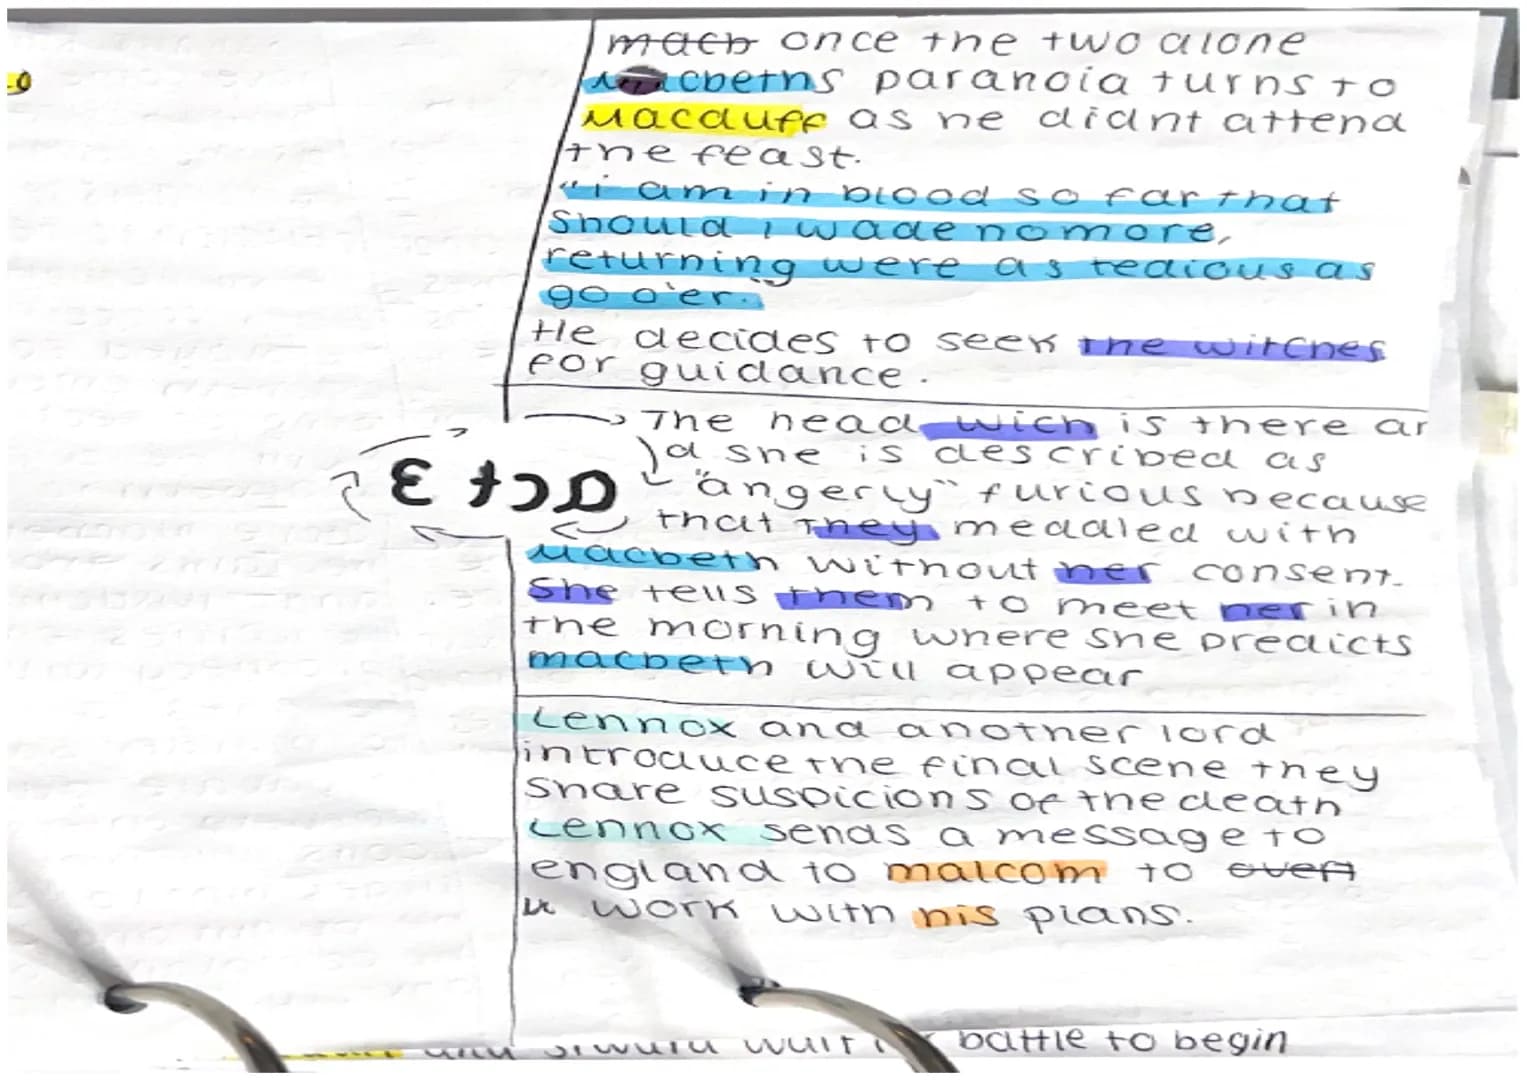 macb once the two alone
macbeths paranoia turns to
Macduff as he didnt attend
the feast.
"i am in blood so far that
should i wade no more,
returning were as tedious as
go o'er."
He decides to seek the witches
for guidance.
The head wich is there an
d she is described as
"angerly" furious because
act 3
that they meddled with
Macbeth without her consent.
She tells them to meet her in
the morning where she predicts
macbeth will appear
Lennox and another lord
introduce the final scene they
share suspicions of the death
Lennox sends a message to
england to malcom to overt
work with his plans.
and siward wait battle to begin